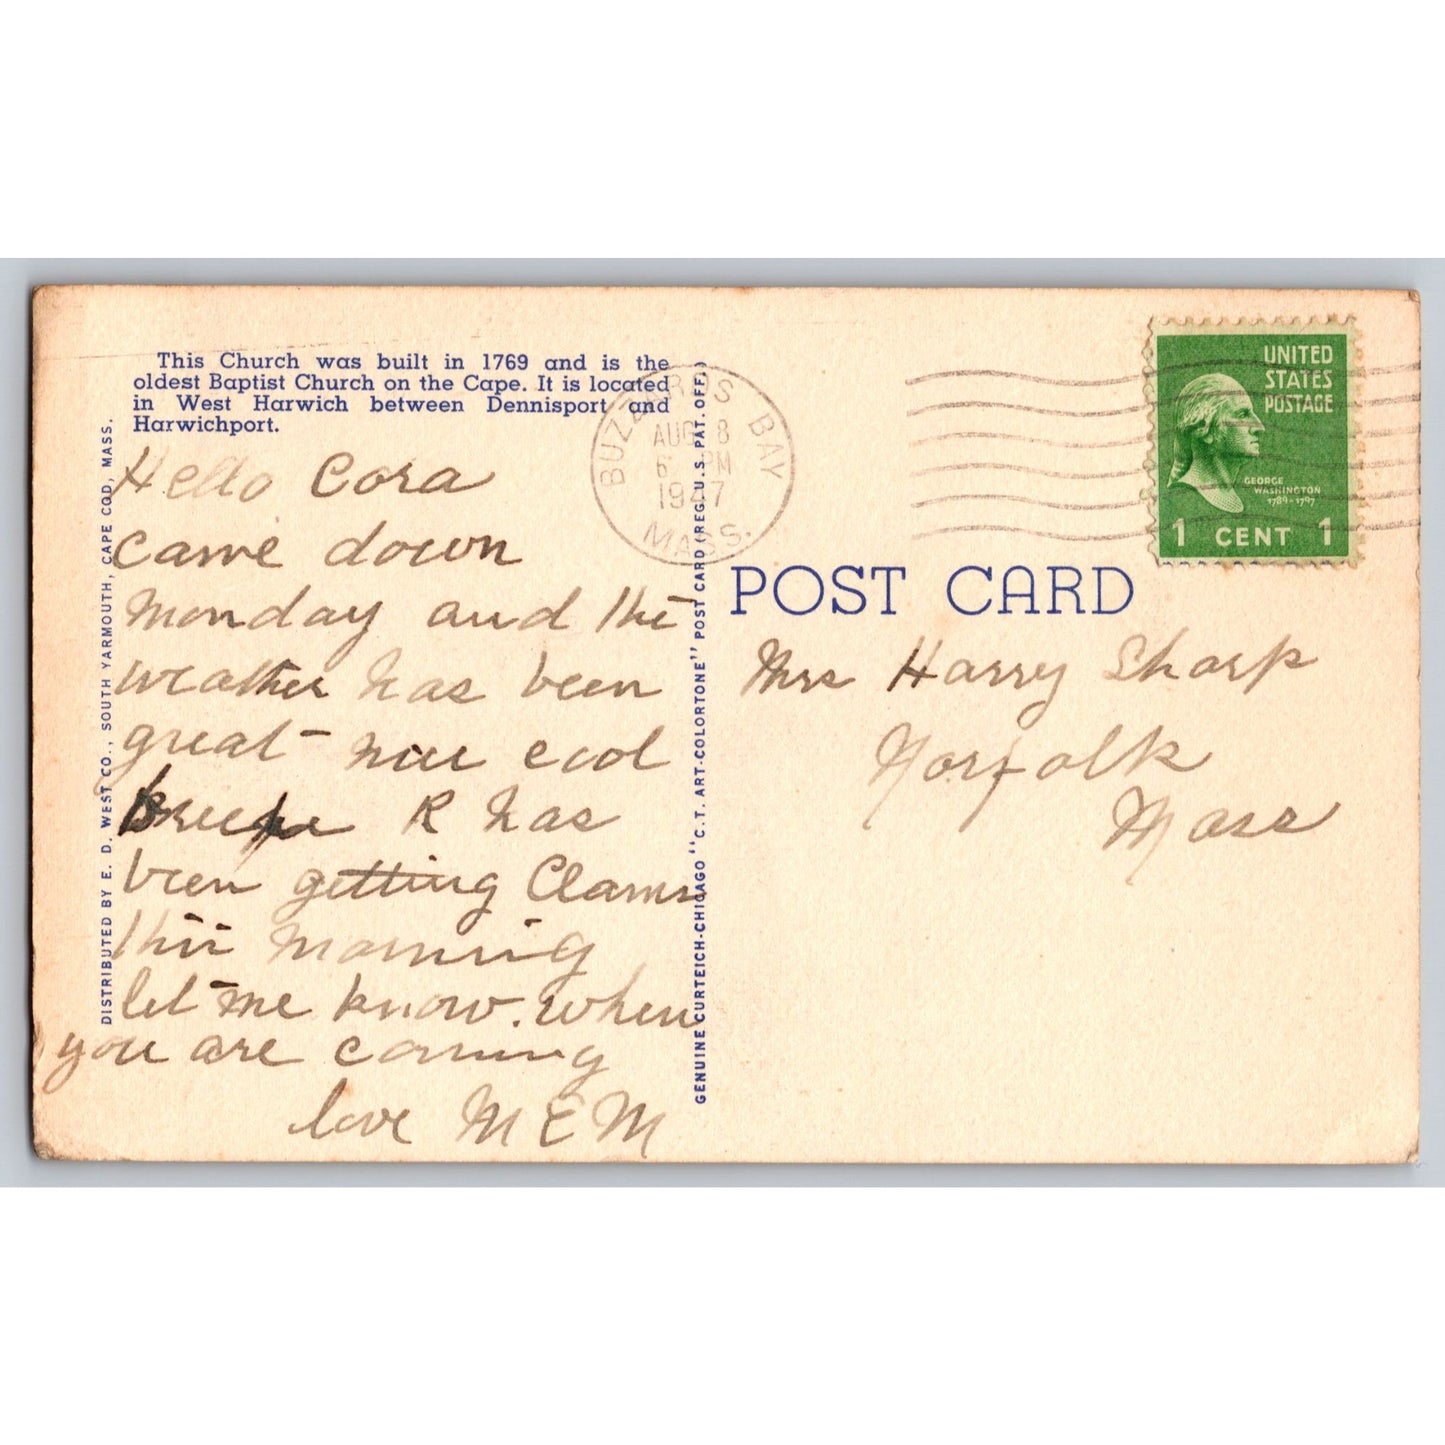 This Church was built in 1769 and is the
oldest Baptist Church on the Cape. It is located
in West Harwich between Dennisport and
Harwichport.
Hello Cora
came down
Monday and the
weather has been
great nice cool
Breeze R has
been getting Clams
this morning
let me know. when
you are coming
love M E M
DISTRIBUTED BY E. D. WEST CO., SOUTH YARMOUTH, CAPE COD, MASS.
GENUINE CURTEICH-CHICAGO "C.T. ART-COLORTONE" POST CARD (REG. U.S. PAT. OFF.)
BUZZARDS BAY
AUG 8
6 PM
1947
MASS.
UNITED
STATES
POSTAGE
GEORGE
WASHINGTON
1789-1797
1 CENT 1
POST CARD
Mrs Harry Sharp
Norfolk
Mass